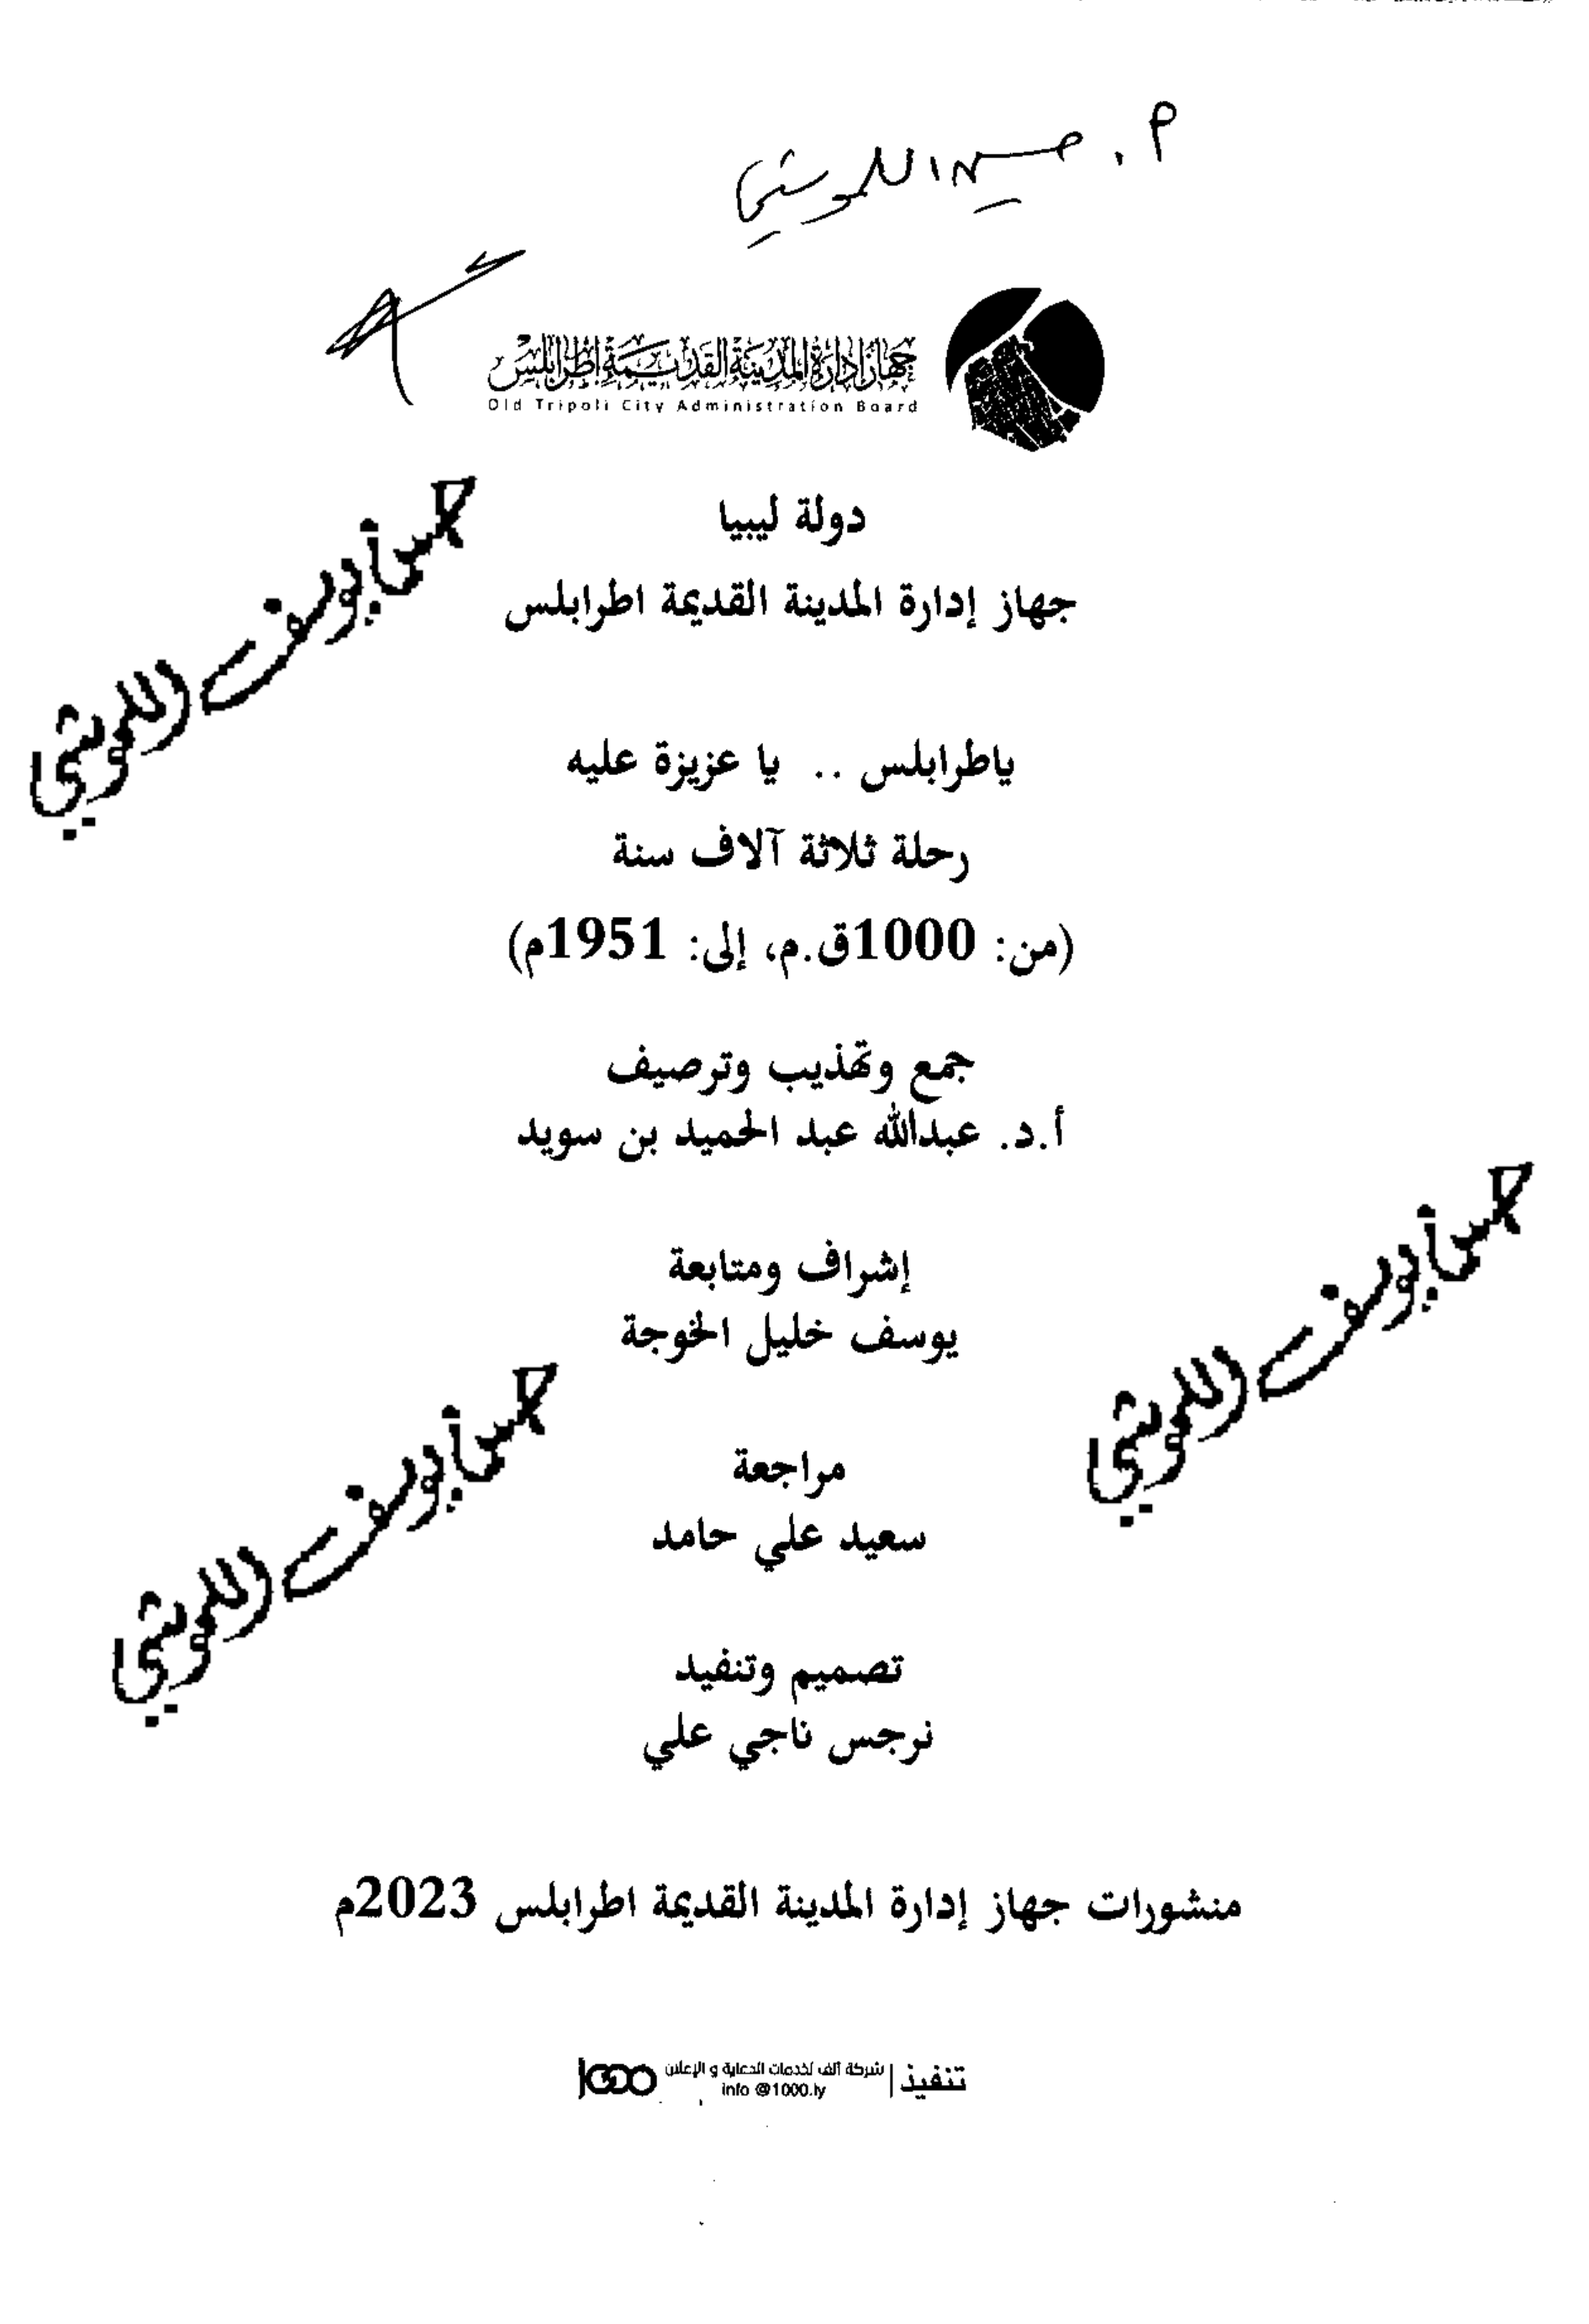 م. حسين اللموشي
جهاز إدارة المدينة القديمة اطرابلس
Old Tripoli City Administration Board
دولة ليبيا
جهاز إدارة المدينة القديمة اطرابلس
ياطرابلس .. يا عزيزة عليه
رحلة ثلاثة آلاف سنة
(من: 1000ق.م، إلى: 1951م)
جمع وتهذيب وترصيف
أ.د. عبدالله عبد الحميد بن سويد
إشراف ومتابعة
يوسف خليل الخوجة
مراجعة
سعيد علي حامد
تصميم وتنفيد
نرجس ناجي علي
منشورات جهاز إدارة المدينة القديمة اطرابلس 2023م
تنفيذ | شركة ألف لخدمات الدعاية و الإعلان
info @1000.ly